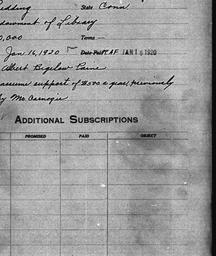 Redding State Conn
dowment of Library
0,000 Terms —
Jan 16, 1920 Date Paid PAF JAN 16 1920
Albert Bigelow Paine
assume support of $500 a year, previously
by Mr. Carnegie
ADDITIONAL SUBSCRIPTIONS
PROMISED PAID OBJECT